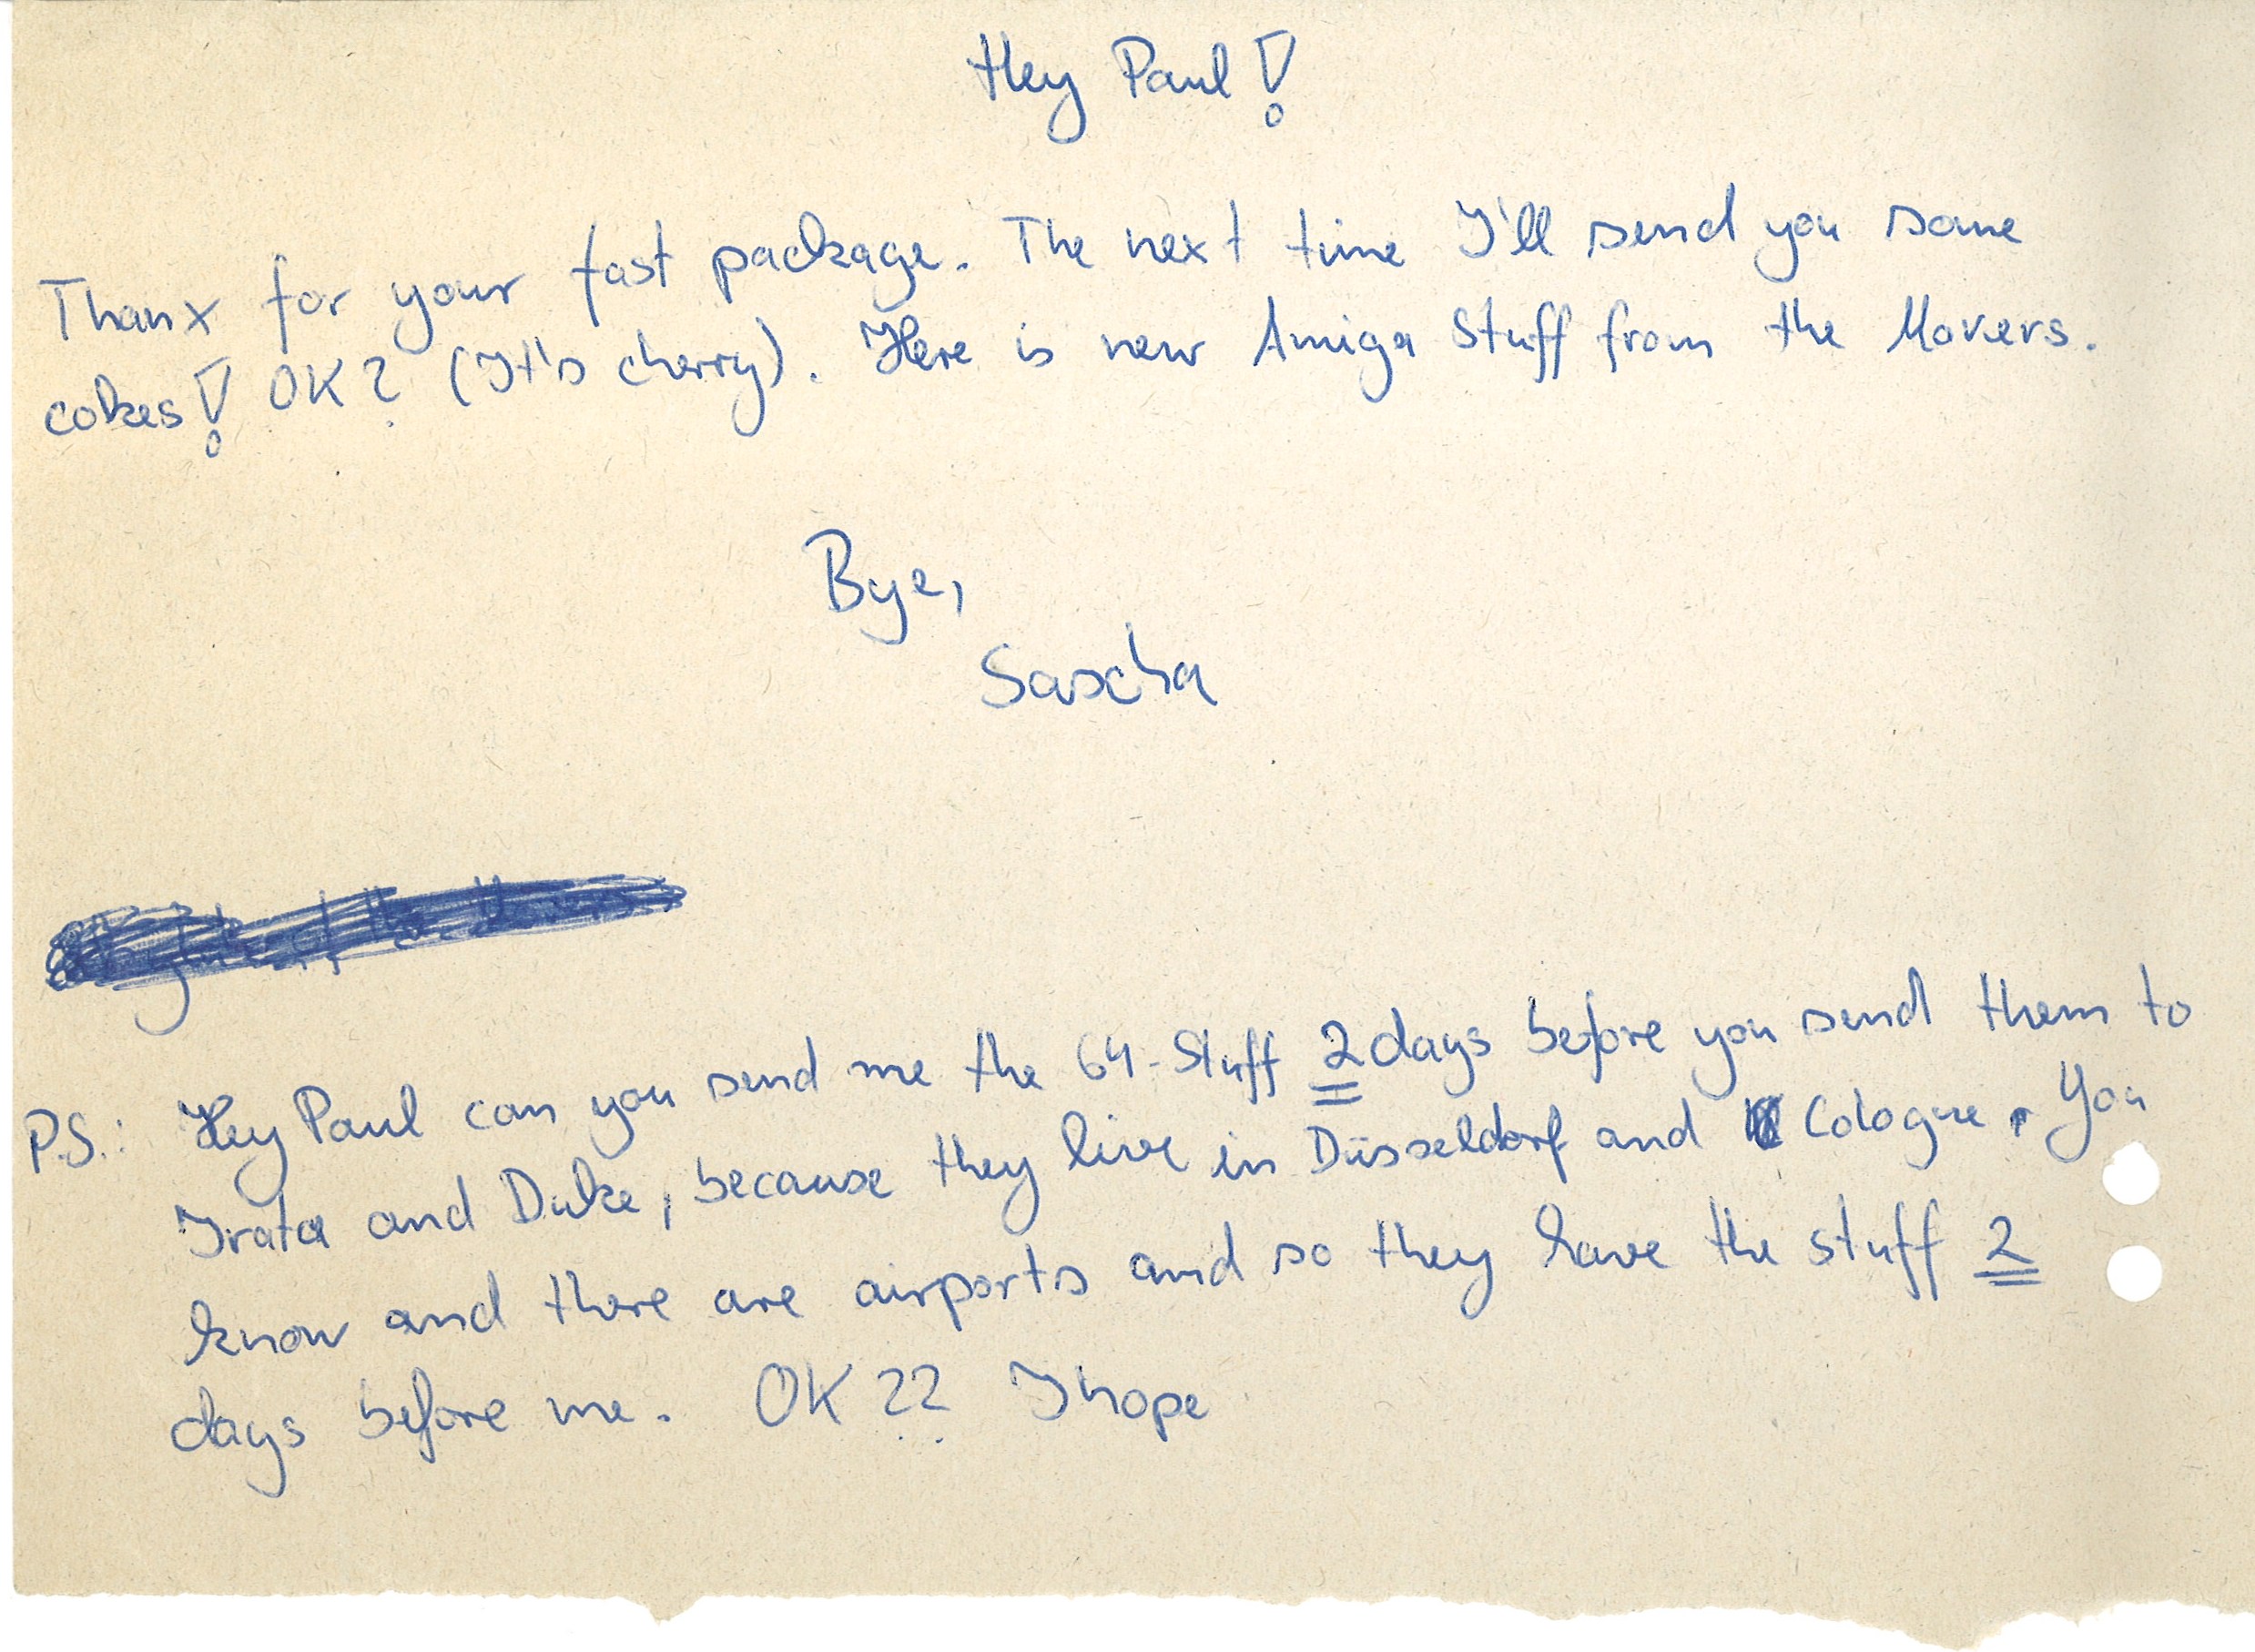 Hey Paul!
Thanx for your fast package. The next time I'll send you some
cokes! OK? (It's cherry). Here is new Amiga Stuff from the Movers.
Bye,
Sascha
P.S.: Hey Paul can you send me the 64-Stuff 2 days before you send them to
Irata and Duke, because they live in Düsseldorf and Cologne. You
know and there are airports and so they have the stuff 2
days before me. OK?? I hope